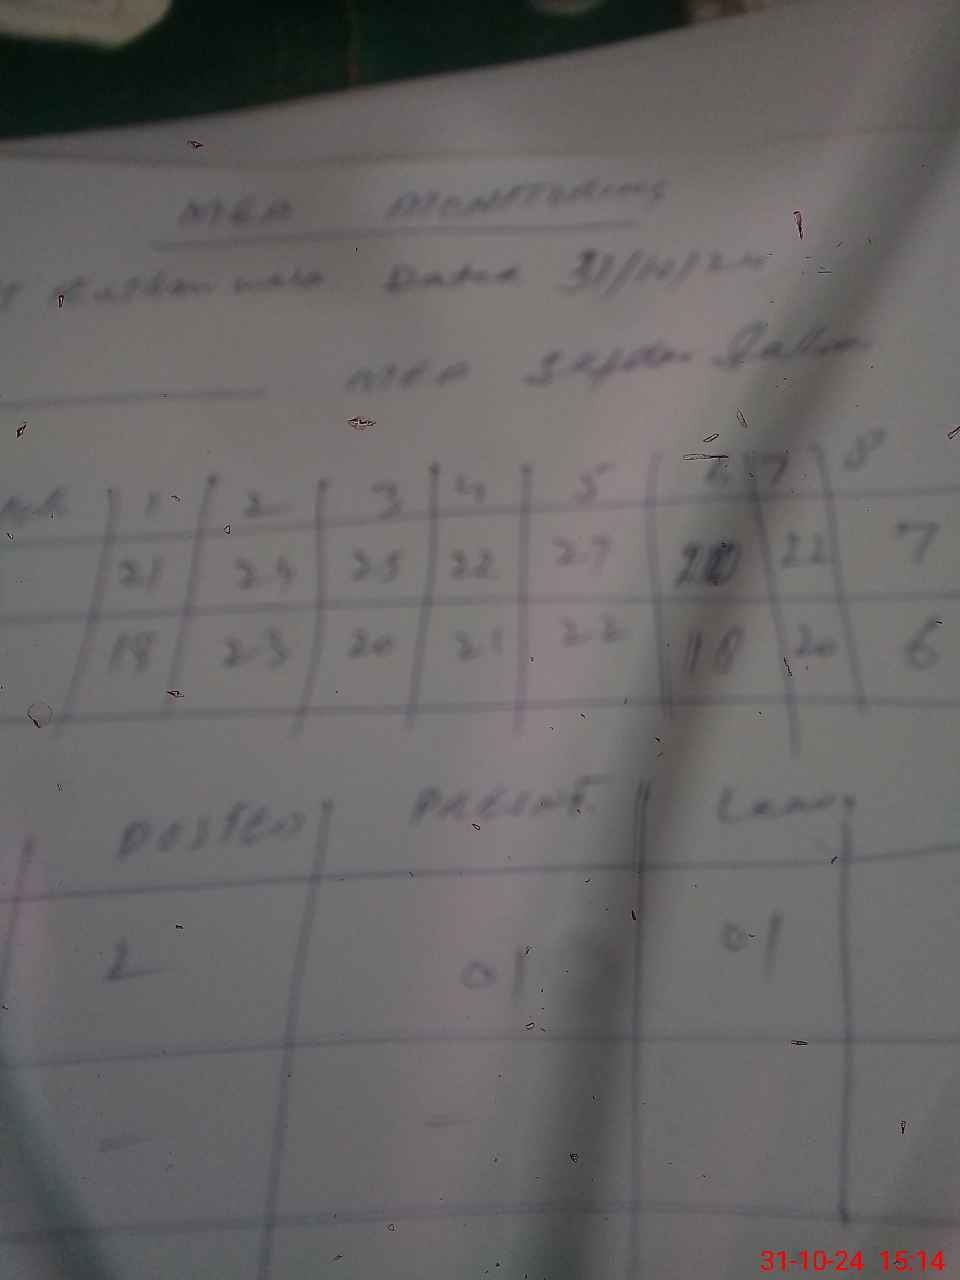 MEA MONITORING
Dated 31/10/24
MEA
1 2 3 4 5 6 7 8
21 24 25 22 27 20 22 7
18 23 20 21 22 18 20 6
POSTED PRESENT Leave
2 01 01
- -
31-10-24 15:14